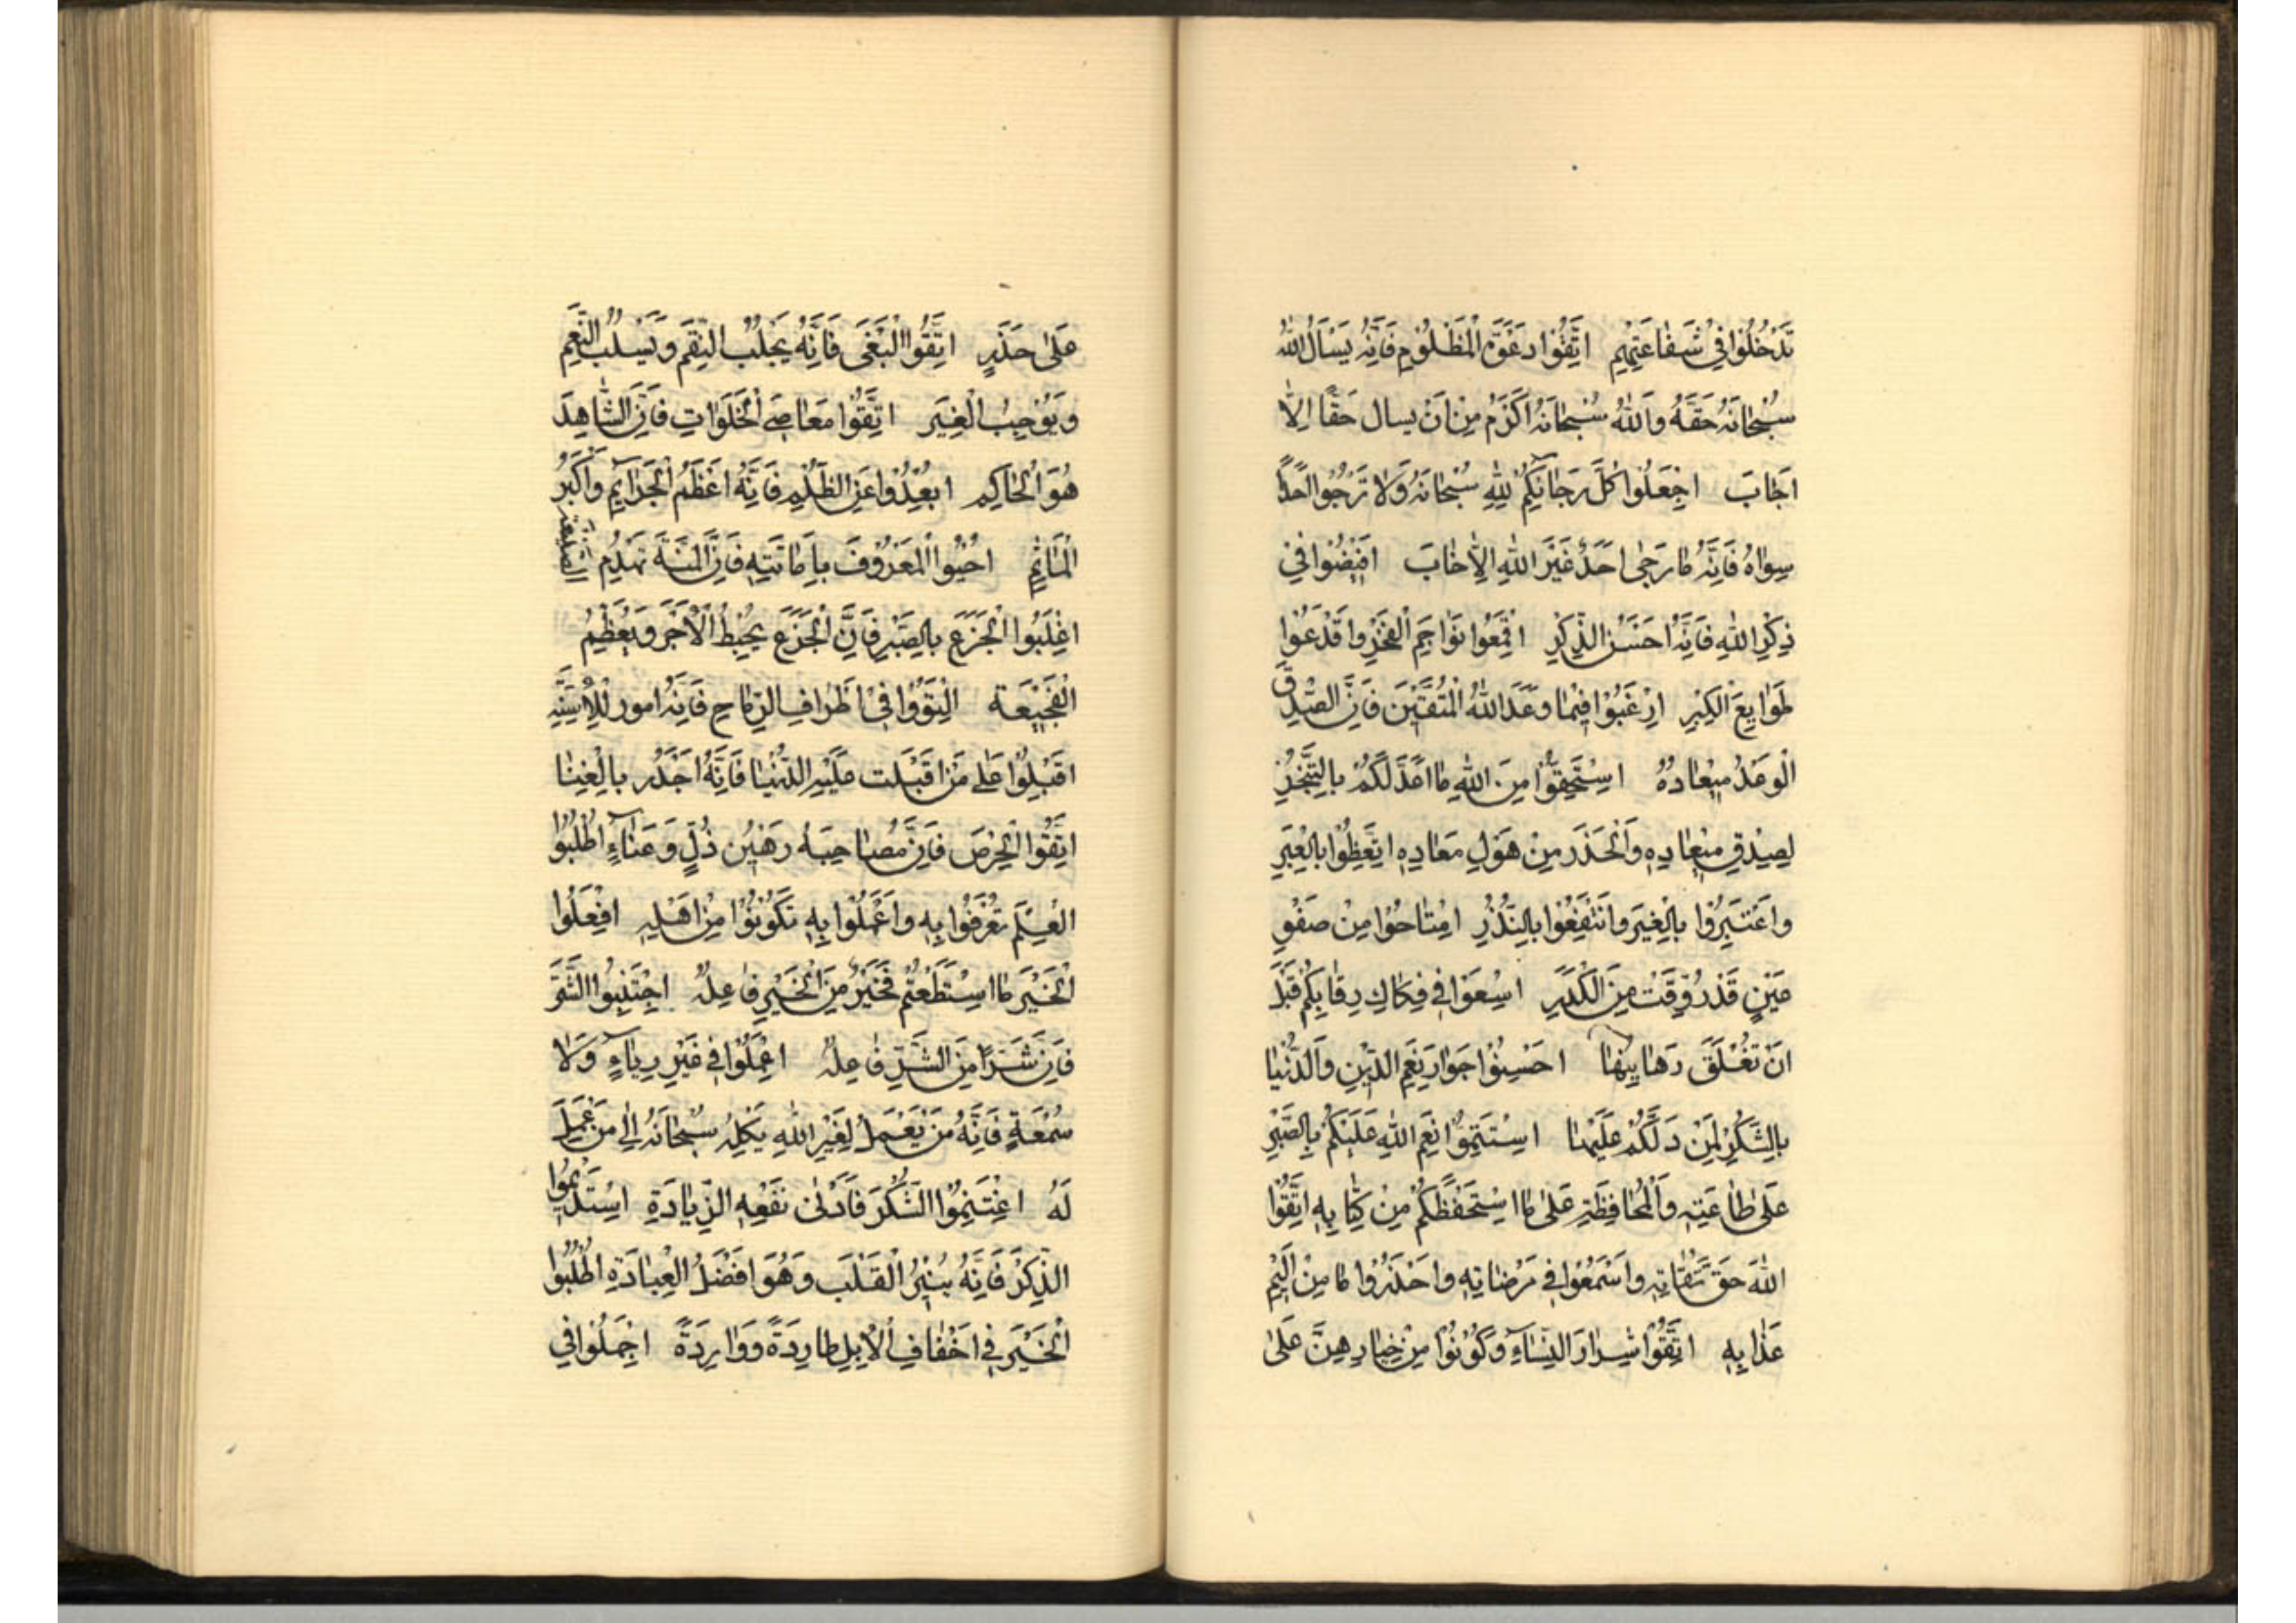 تَدْخُلُوا فِي شَفَاعَتِهِمْ اتَّقُوا دَعْوَةَ الْمَظْلُومِ فَاِنَّهُ يَسْأَلُ اللّٰهَ
سُبْحَانَهُ حَقَّهُ وَاللّٰهُ سُبْحَانَهُ اَكْرَمُ مِنْ اَنْ يسال حَقًّا اِلَّا
اَجَابَ اجْعَلُوا كُلَّ رَجَائِكُمْ لِلّٰهِ سُبْحَانَهُ وَلَا تَرْجُوا اَحَدًا
سِوَاهُ فَاِنَّهُ مَا رَجٰى اَحَدٌ غَيْرَ اللّٰهِ اِلَّا خَابَ افِيضُوا فِي
ذِكْرِ اللّٰهِ فَاِنَّهُ اَحْسَنُ الذِّكْرِ اقْمَعُوا نَوَاجِمَ الْفَخْرِ وَاقْدَعُوا
لَوَامِعَ الْكِبْرِ ارْغَبُوا فِيمَا وَعَدَ اللّٰهُ الْمُتَّقِينَ فَاِنَّ اَصْدَقَ
الْوَعْدِ مِيعَادُهُ اسْتَحِقُّوا مِنَ اللّٰهِ مَا اَعَدَّ لَكُمْ بِالتَّنَجُّزِ
لِصِدْقِ مِيعَادِهِ وَالْحَذَرِ مِنْ هَوْلِ مَعَادِهِ اتَّعِظُوا بِالْعِبَرِ
وَاعْتَبِرُوا بِالْغِيَرِ وَانْتَفِعُوا بِالنُّذُرِ امْتَاحُوا مِنْ صَفْوِ
عَيْنٍ قَدْ رُوِّقَتْ مِنَ الْكَدَرِ اسْعَوْا فِي فِكَاكِ رِقَابِكُمْ قَبْلَ
اَنْ تُغْلَقَ رَهَايِنُهَا احْسِنُوا جِوَارَ نِعَمِ الدِّينِ وَالدُّنْيَا
بِالشُّكْرِ لِمَنْ دَلَّكُمْ عَلَيْهَا اسْتَتِمُّوا نِعَمَ اللّٰهِ عَلَيْكُمْ بِالصَّبْرِ
عَلٰى طَاعَتِهِ وَالْمُحَافَظَةِ عَلٰى مَا اسْتَحْفَظَكُمْ مِنْ كِتَابِهِ اتَّقُوا
اللّٰهَ حَقَّ تُقَاتِهِ وَاسْعَوْا فِي مَرْضَاتِهِ وَاحْذَرُوا مَا مِنْ اَلِيمِ
عَذَابِهِ اتَّقُوا شِرَارَ النِّسَاءِ وَكُونُوا مِنْ خِيَارِهِنَّ عَلٰى
عَلٰى حَذَرٍ اتَّقُوا الْبَغْيَ فَاِنَّهُ يَجْلِبُ النِّقَمَ وَيَسْلُبُ النِّعَمَ
وَيُوجِبُ الْغِيَرَ اتَّقُوا مَعَاصِيَ الْخَلَوَاتِ فَاِنَّ الشَّاهِدَ
هُوَ الْحَاكِمُ ابْعُدُوا عَنِ الظُّلْمِ فَاِنَّهُ اَعْظَمُ الْجَرَائِمِ وَاَكْبَرُ
الْمَآثِمِ احْيُوا الْمَعْرُوفَ بِاِمَاتَتِهِ فَاِنَّ الْمِنَّةَ تَهْدِمُ
اغْلِبُوا الْجَزَعَ بِالصَّبْرِ فَاِنَّ الْجَزَعَ يُحْبِطُ الْاَجْرَ وَيُعَظِّمُ
الْفَجِيعَةَ الْتَوُوا فِي اَطْرَافِ الرِّمَاحِ فَاِنَّهُ امور لِلْاَسِنَّةِ
اقْبِلُوا عَلٰى مَنْ اَقْبَلَت عَلَيْهِ الدُّنْيَا فَاِنَّهُ اَجْدَر بِالْغِنَا
اتَّقُوا الْحِرْصَ فَاِنَّ مُصَاحِبَهُ رَهِينُ ذُلٍّ وَعَنَاءٍ اطْلُبُوا
الْعِلْمَ تُعْرَفُوا بِهِ وَاعْمَلُوا بِهِ تَكُونُوا مِنْ اَهْلِهِ افْعَلُوا
الْخَيْرَ مَا اسْتَطَعْتُمْ فَخَيْرٌ مِنَ الْخَيْرِ فَاعِلُهُ اجْتَنِبُوا الشَّرَّ
فَاِنَّ شَرًّا مِنَ الشَّرِّ فَاعِلُهُ اعْمَلُوا فِي غَيْرِ رِيَاءٍ وَلَا
سُمْعَةٍ فَاِنَّهُ مَنْ يَعْمَلْ لِغَيْرِ اللّٰهِ يَكِلْهُ سُبْحَانَهُ اِلٰى مَنْ عَمِلَ
لَهُ اغْتَنِمُوا الشُّكْرَ فَاَدْنٰى نَفْعِهِ الزِّيَادَةِ اسْتَدِيمُوا
الذِّكْرَ فَاِنَّهُ يُنِيرُ الْقَلْبَ وَهُوَ اَفْضَلُ الْعِبَادَةِ اطْلُبُوا
الْخَيْرَ فِي اَخْفَافِ الْاِبِلِ طَارِدَةً وَوَارِدَةً اجْمِلُوا فِي